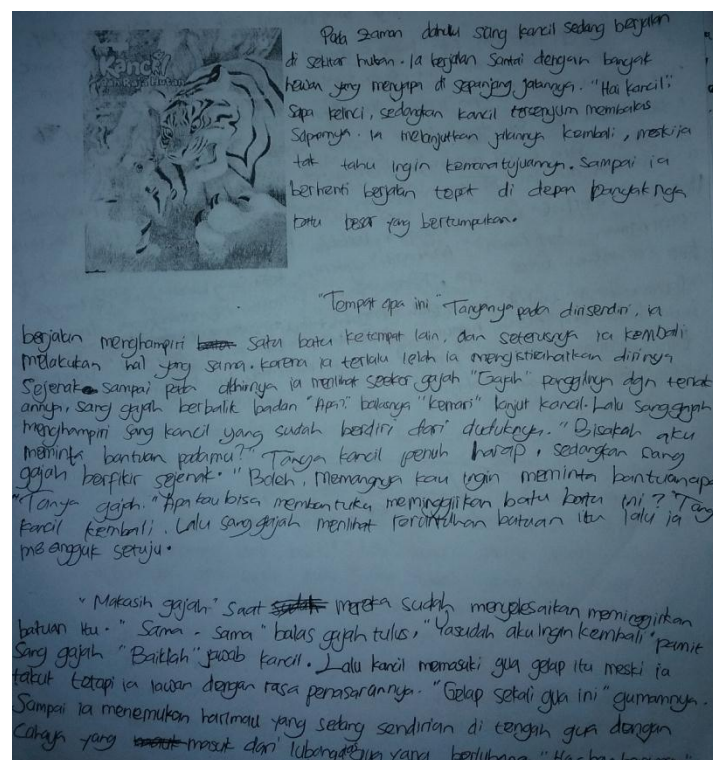 Kancil
dan Raja Hutan
Pada zaman dahulu sang kancil sedang berjalan
di sekitar hutan. Ia berjalan santai dengan banyak
hewan yang menyapa di sepanjang jalannya. "Hai kancil"
sapa kelinci, sedangkan kancil tersenyum membalas
sapannya. Ia melanjutkan jalannya kembali, meski ia
tak tahu ingin kemana tujuannya. Sampai ia
berhenti berjalan tepat di depan banyaknya
batu besar yang bertumpukan.
"Tempat apa ini" Tanyanya pada dirisendiri, ia
berjalan menghampiri satu batu ketempat lain, dan seterusnya ia kembali
melakukan hal yang sama. karena ia terlalu lelah ia mengistirahatkan dirinya
Sejenak sampai pada akhirnya ia melihat seekor gajah "Gajah" panggilnya dgn teriak
annya, sang gajah berbalik badan "Apa?" balasnya "kemari" lanjut kancil. Lalu sang gajah
menghampiri sang kancil yang sudah berdiri dari duduknya. "Bisakah aku
meminta bantuan padamu?" Tanya kancil penuh harap, sedangkan sang
gajah berfikir sejenak. "Boleh, Memangnya kau ingin meminta bantuan apa
"Tanya gajah. "Apa kau bisa membantuku meminggirkan batu batu ini? "Tany
kancil kembali. Lalu sang gajah melihat reruntuhan batuan itu lalu ia
mengangguk setuju.
"Makasih gajah" Saat mereka sudah menyelesaikan meminggirkan
batuan itu. "Sama - sama" balas gajah tulus, "Yasudah aku ingin kembali" pamit
Sang gajah "Baiklah" jawab kancil. Lalu kancil memasuki gua gelap itu meski ia
takut tetapi ia lawan dengan rasa penasarannya. "Gelap sekali gua ini" gumamnya.
Sampai ia menemukan harimau yang sedang sendirian di tengah gua dengan
Cahaya yang masuk dari lubang gua yang berlubang